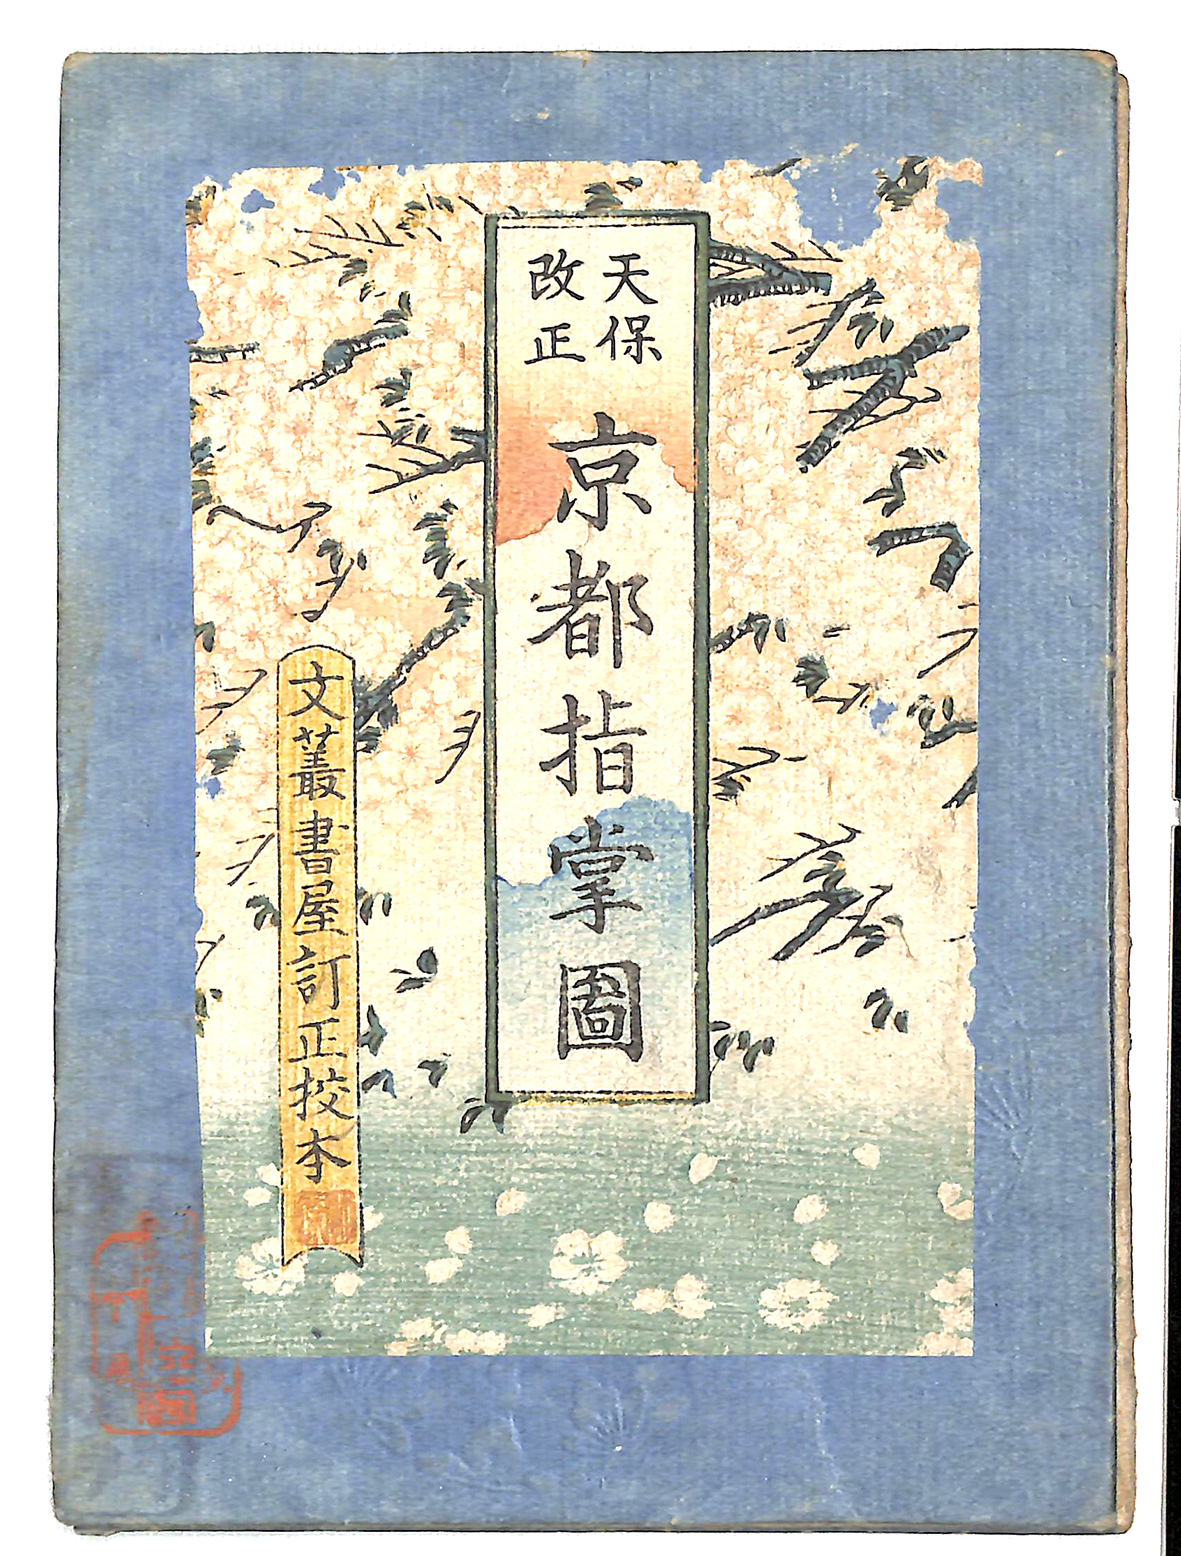 天保
改正
京都指掌圖
文叢書屋訂正挍本